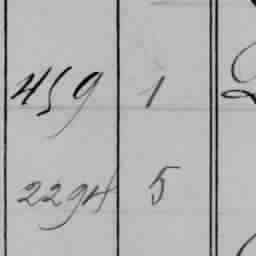 459 1
2294 5